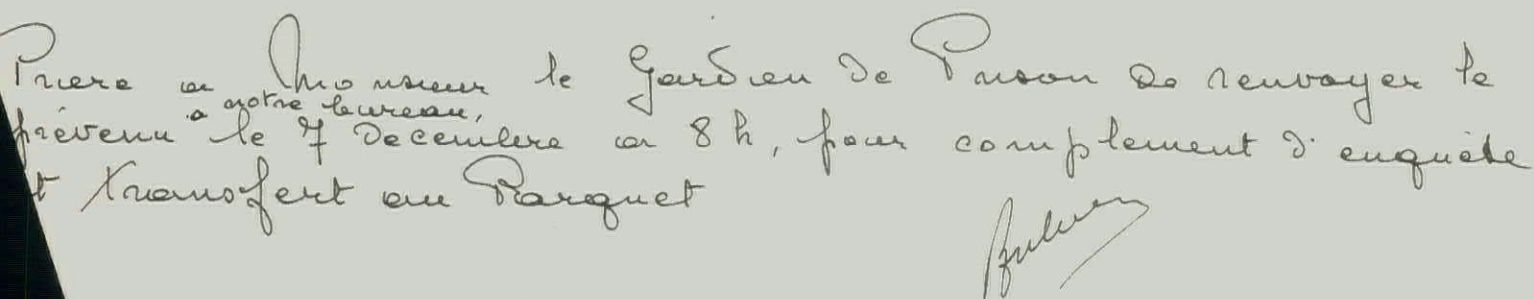 Priere a Monsieur le Gardien de Prison de renvoyer le
prévenu à notre bureau, le 7 Decembre a 8 h, pour complement d'enquête
et transfert au Parquet